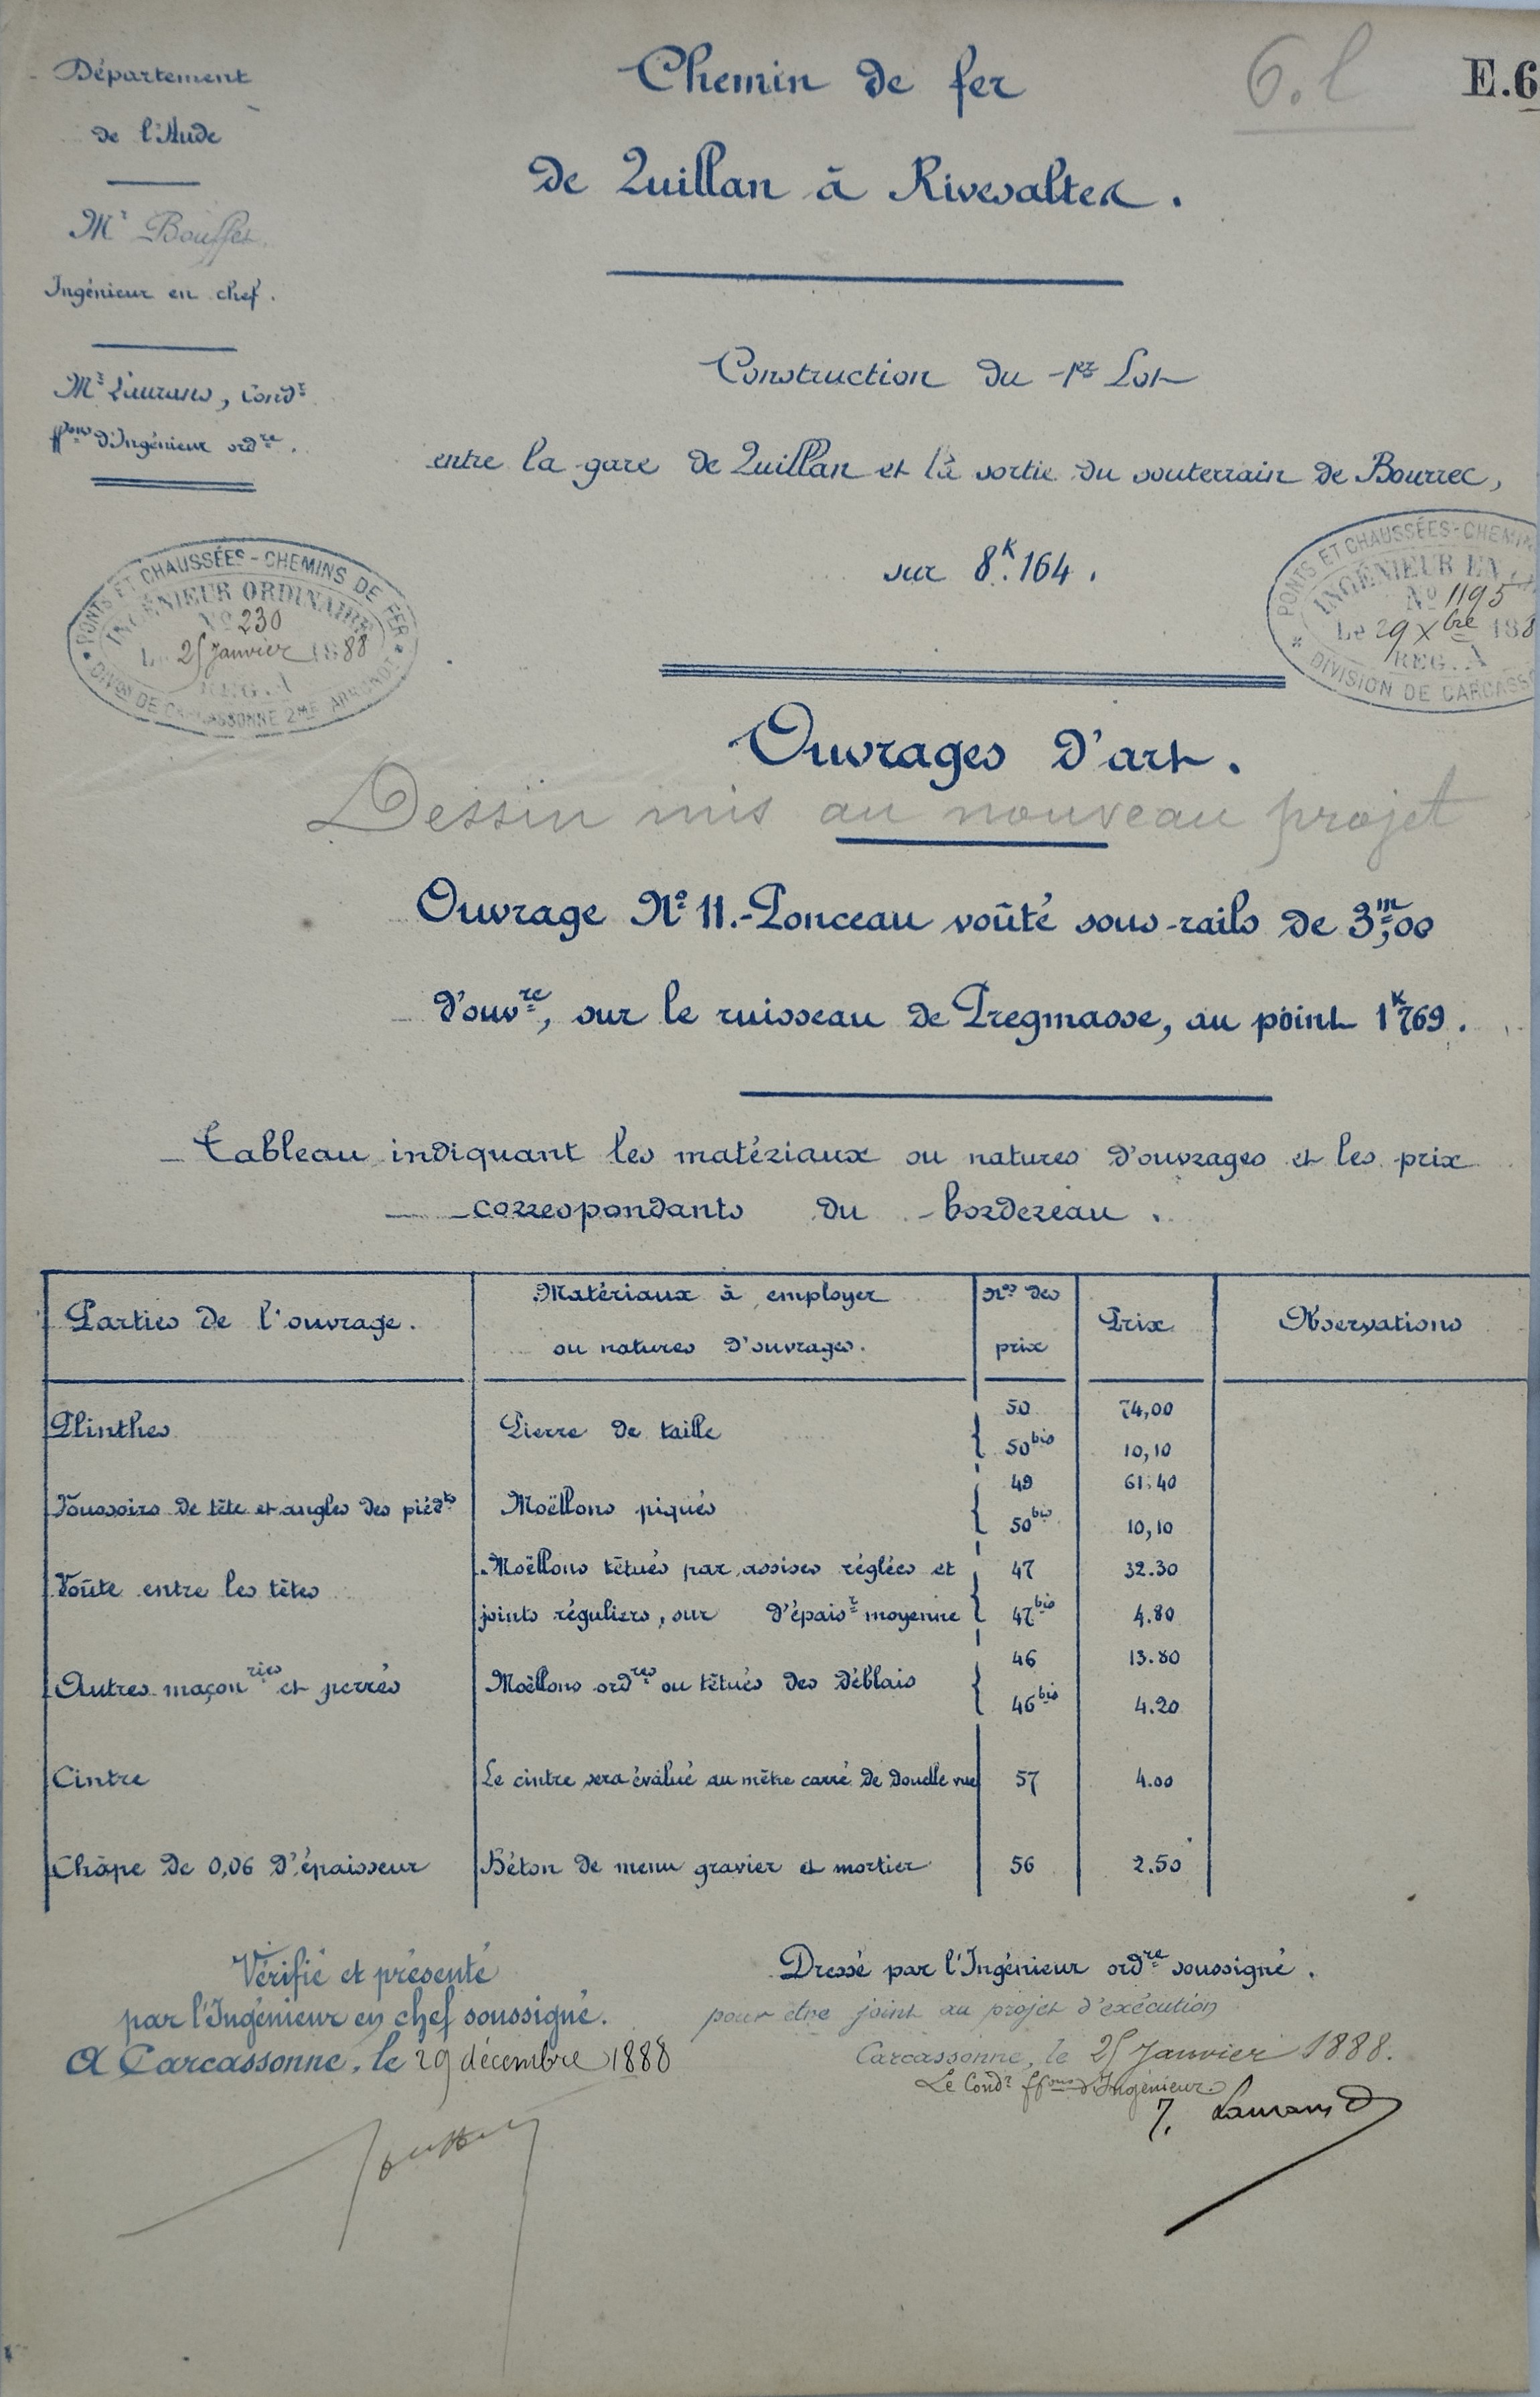 Département
de l'Aude
Mr Bouffet
Ingénieur en chef.
Mr Laurans, Condr
ffons d'Ingénieur ordre.
Chemin de fer
de Quillan à Rivesaltes.
6.l
E.6
Construction du 1er Lot
entre la gare de Quillan et la sortie du souterrain de Bourrec,
sur 8k.164.
PONTS ET CHAUSSÉES - CHEMINS DE FER
INGÉNIEUR ORDINAIRE
No 230
Le 25 Janvier 1888
REG. A
DIVon DE CARCASSONNE 2ME ARRONDT
PONTS ET CHAUSSÉES - CHEMINS
INGÉNIEUR EN
No 1195
Le 29 Xbre 188
REG. A
DIVISION DE CARCASSO
Ouvrages d'art.
Dessin mis au nouveau projet
Ouvrage No 11.- Ponceau voûté sous-rails de 3m,00
d'ouvre, sur le ruisseau de Pregmasse, au point 1k769.
Tableau indiquant les matériaux ou natures d'ouvrages et les prix
correspondants du bordereau.
Parties de l'ouvrage. Matériaux à employer ou natures d'ouvrages. Nos des prix Prix Observations
Plinthes Pierre de taille { 50 74,00
50bis 10,10
Voussoirs de tête et angles des piédts Moëllons piqués { 49 61.40
50bis 10,10
Voûte entre les têtes Moëllons têtués par assises réglées et 47 32.30
joints réguliers, sur d'épaisr moyenne { 47bis 4.80
Autres maçonries et perrés Moëllons ordres ou têtués des déblais { 46 13.80
46bis 4.20
Cintre Le cintre sera évalué au mètre carré de douelle vue 57 4.00
Châpe de 0,06 d'épaisseur Béton de menu gravier et mortier 56 2.50
Vérifié et présenté
par l'Ingénieur en chef soussigné.
A Carcassonne, le 29 décembre 1888
Bouffet
Dressé par l'Ingénieur ordre soussigné.
pour être joint au projet d'exécution
Carcassonne, le 25 Janvier 1888.
Le Condr ffons d'Ingénieur.
J. Laurans